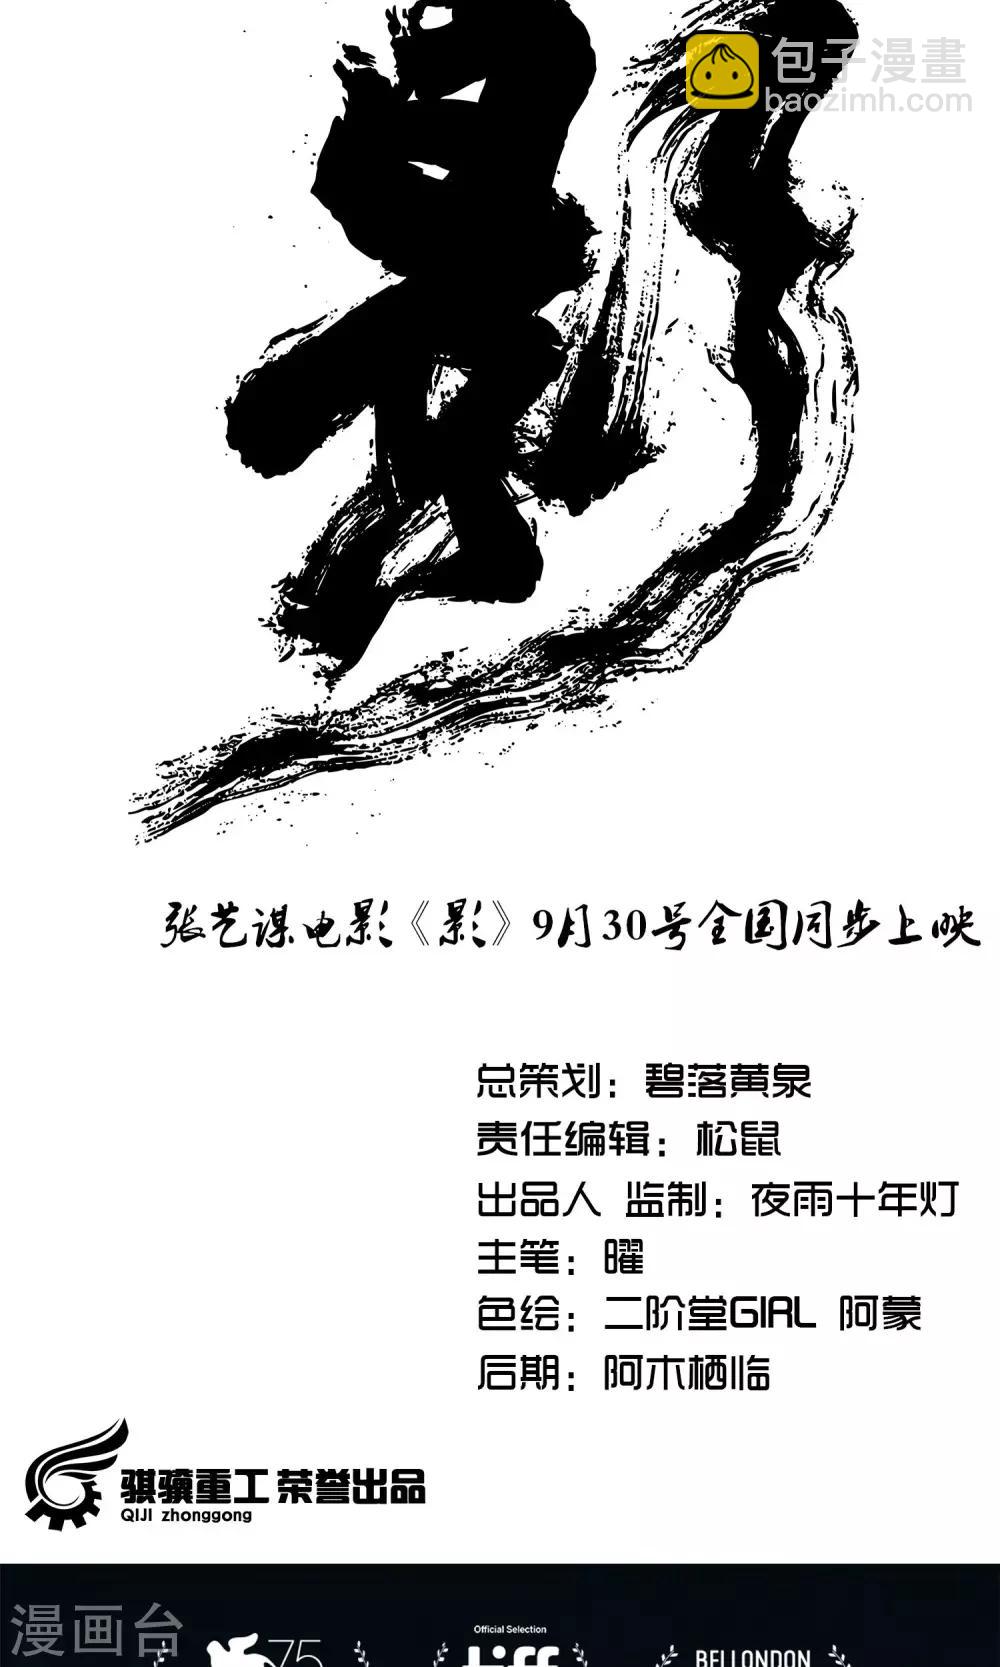 影
包子漫畫
baozimh.com
张艺谋电影《影》9月30号全国同步上映
总策划：碧落黄泉
责任编辑：松鼠
出品人 监制：夜雨十年灯
主笔：曜
色绘：二阶堂GIRL 阿蒙
后期：阿木栖临
骐骥重工 荣誉出品
QIJI zhonggong
漫画台
75
Official Selection
tiff
BFI LONDON